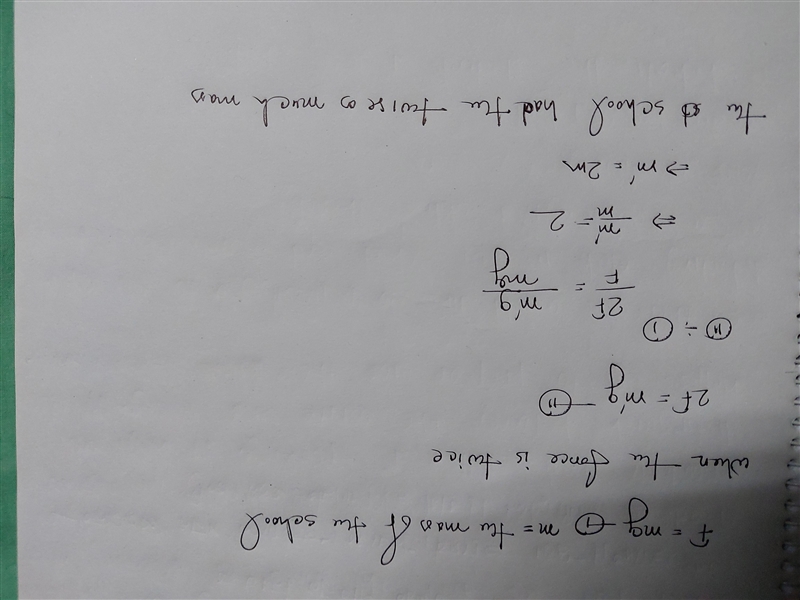 F = mg —① m = the mass of the school
when the force is twice
2F = m'g —⑪
⑪ ÷ ①
2F/F = m'g/mg
⇒ m'/m = 2
⇒ m' = 2m
the school had the twise as much mass